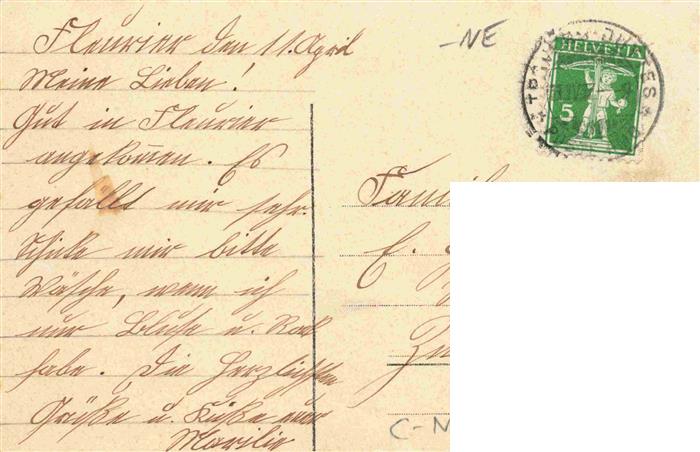 Fleurier den 11. April
Meine Lieben!
Gut in Fleurier
angekommen. Es
gefällt mir sehr.
Schicke mir bitte
Wäsche, wenn ich
nur Bluse u. Rock
habe. Die herzlichsten
Grüße u. Küße
Marilie
-NE
HELVETIA
5
E.
C-N